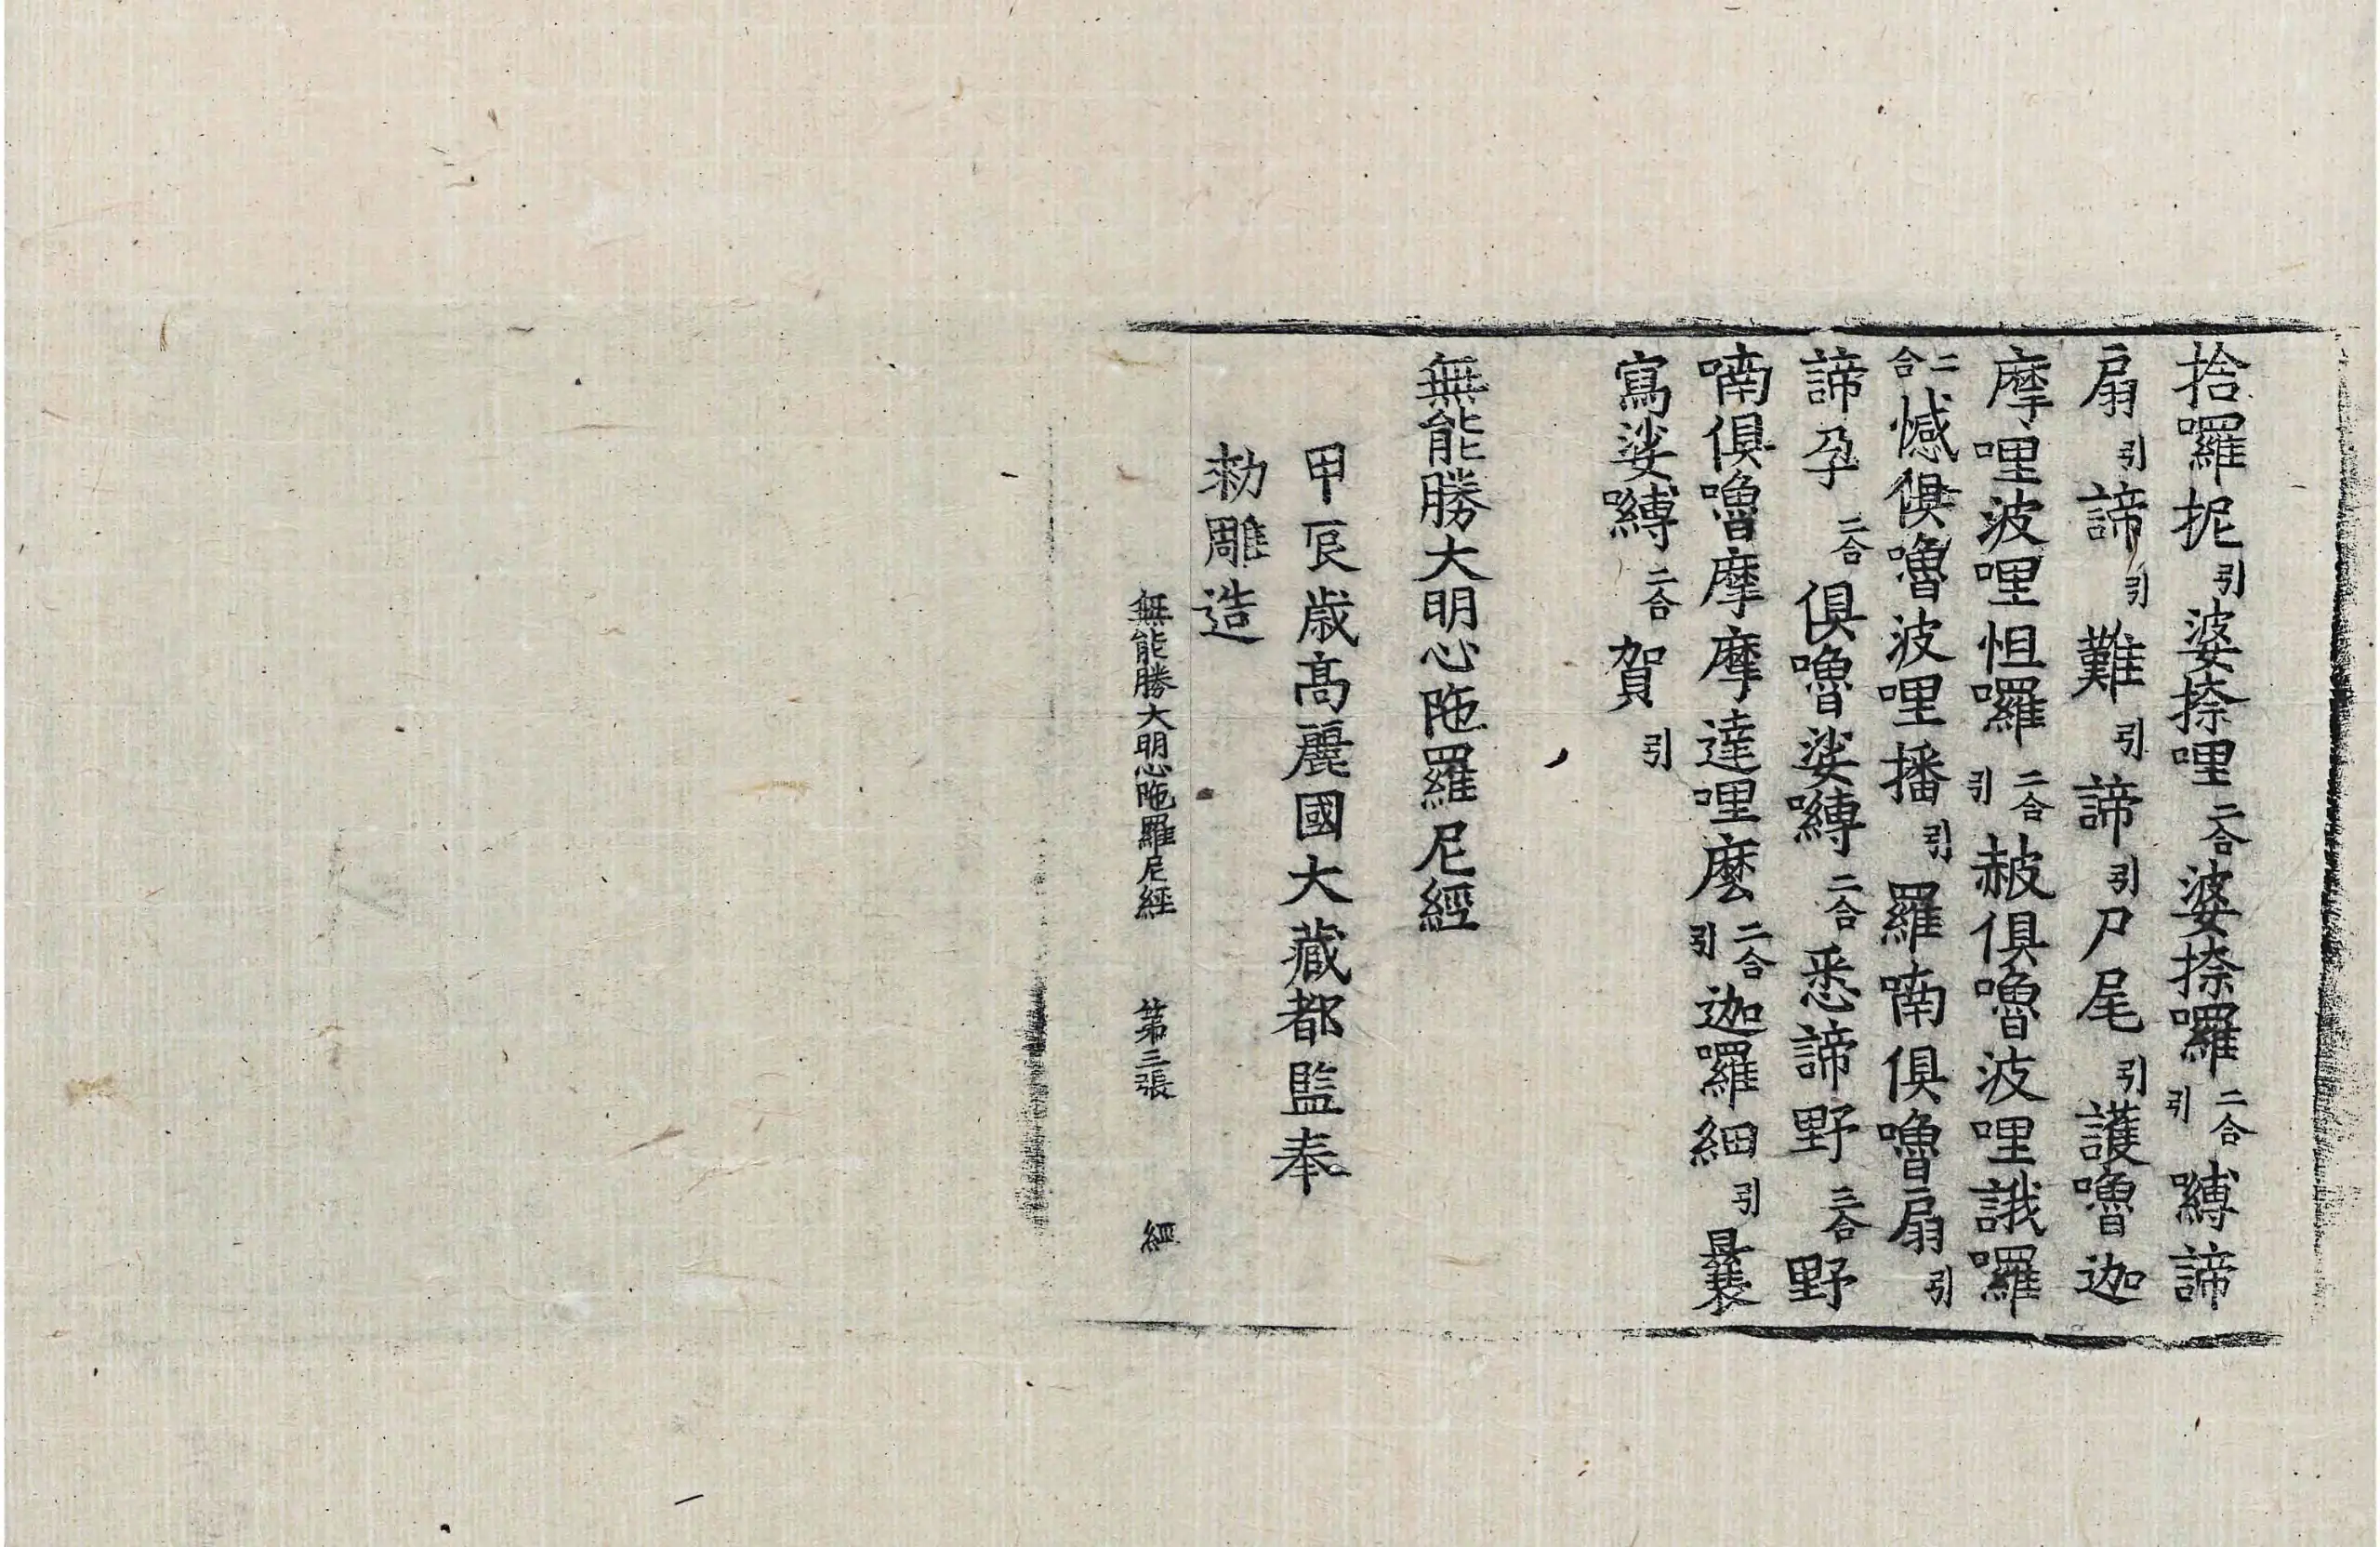 拾囉抳引婆捺哩二合婆捺囉二合引嚩諦
扇引諦引難引諦引尸尾引護嚕迦
摩哩波哩怛囉二合引赧俱嚕波哩誐囉
二合憾俱嚕波哩播引羅喃俱嚕扇引
諦孕二合俱嚕娑嚩二合悉諦野三合野
喃俱嚕摩摩達哩麽二合引迦囉細引曩
寫娑嚩二合賀引
無能勝大明心陁羅尼經
甲辰歲高麗國大藏都監奉
勑雕造
無能勝大明心陁羅尼經 第三張 經